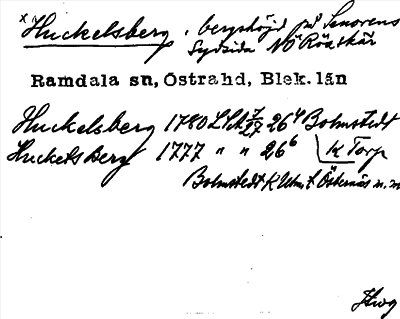 x Huckelsberg, bergshöjd på Senorens
Sydsida NÖ Röätkär
Ramdala sn, Östra hd, Blek. län
Huckelsberg 1780 LSA 7/27 26⁴ Bolmstedt
Huckelsberg 1777 " " 26⁶ K Torp
Bolmstedt K Utm. t Östernäs m.m